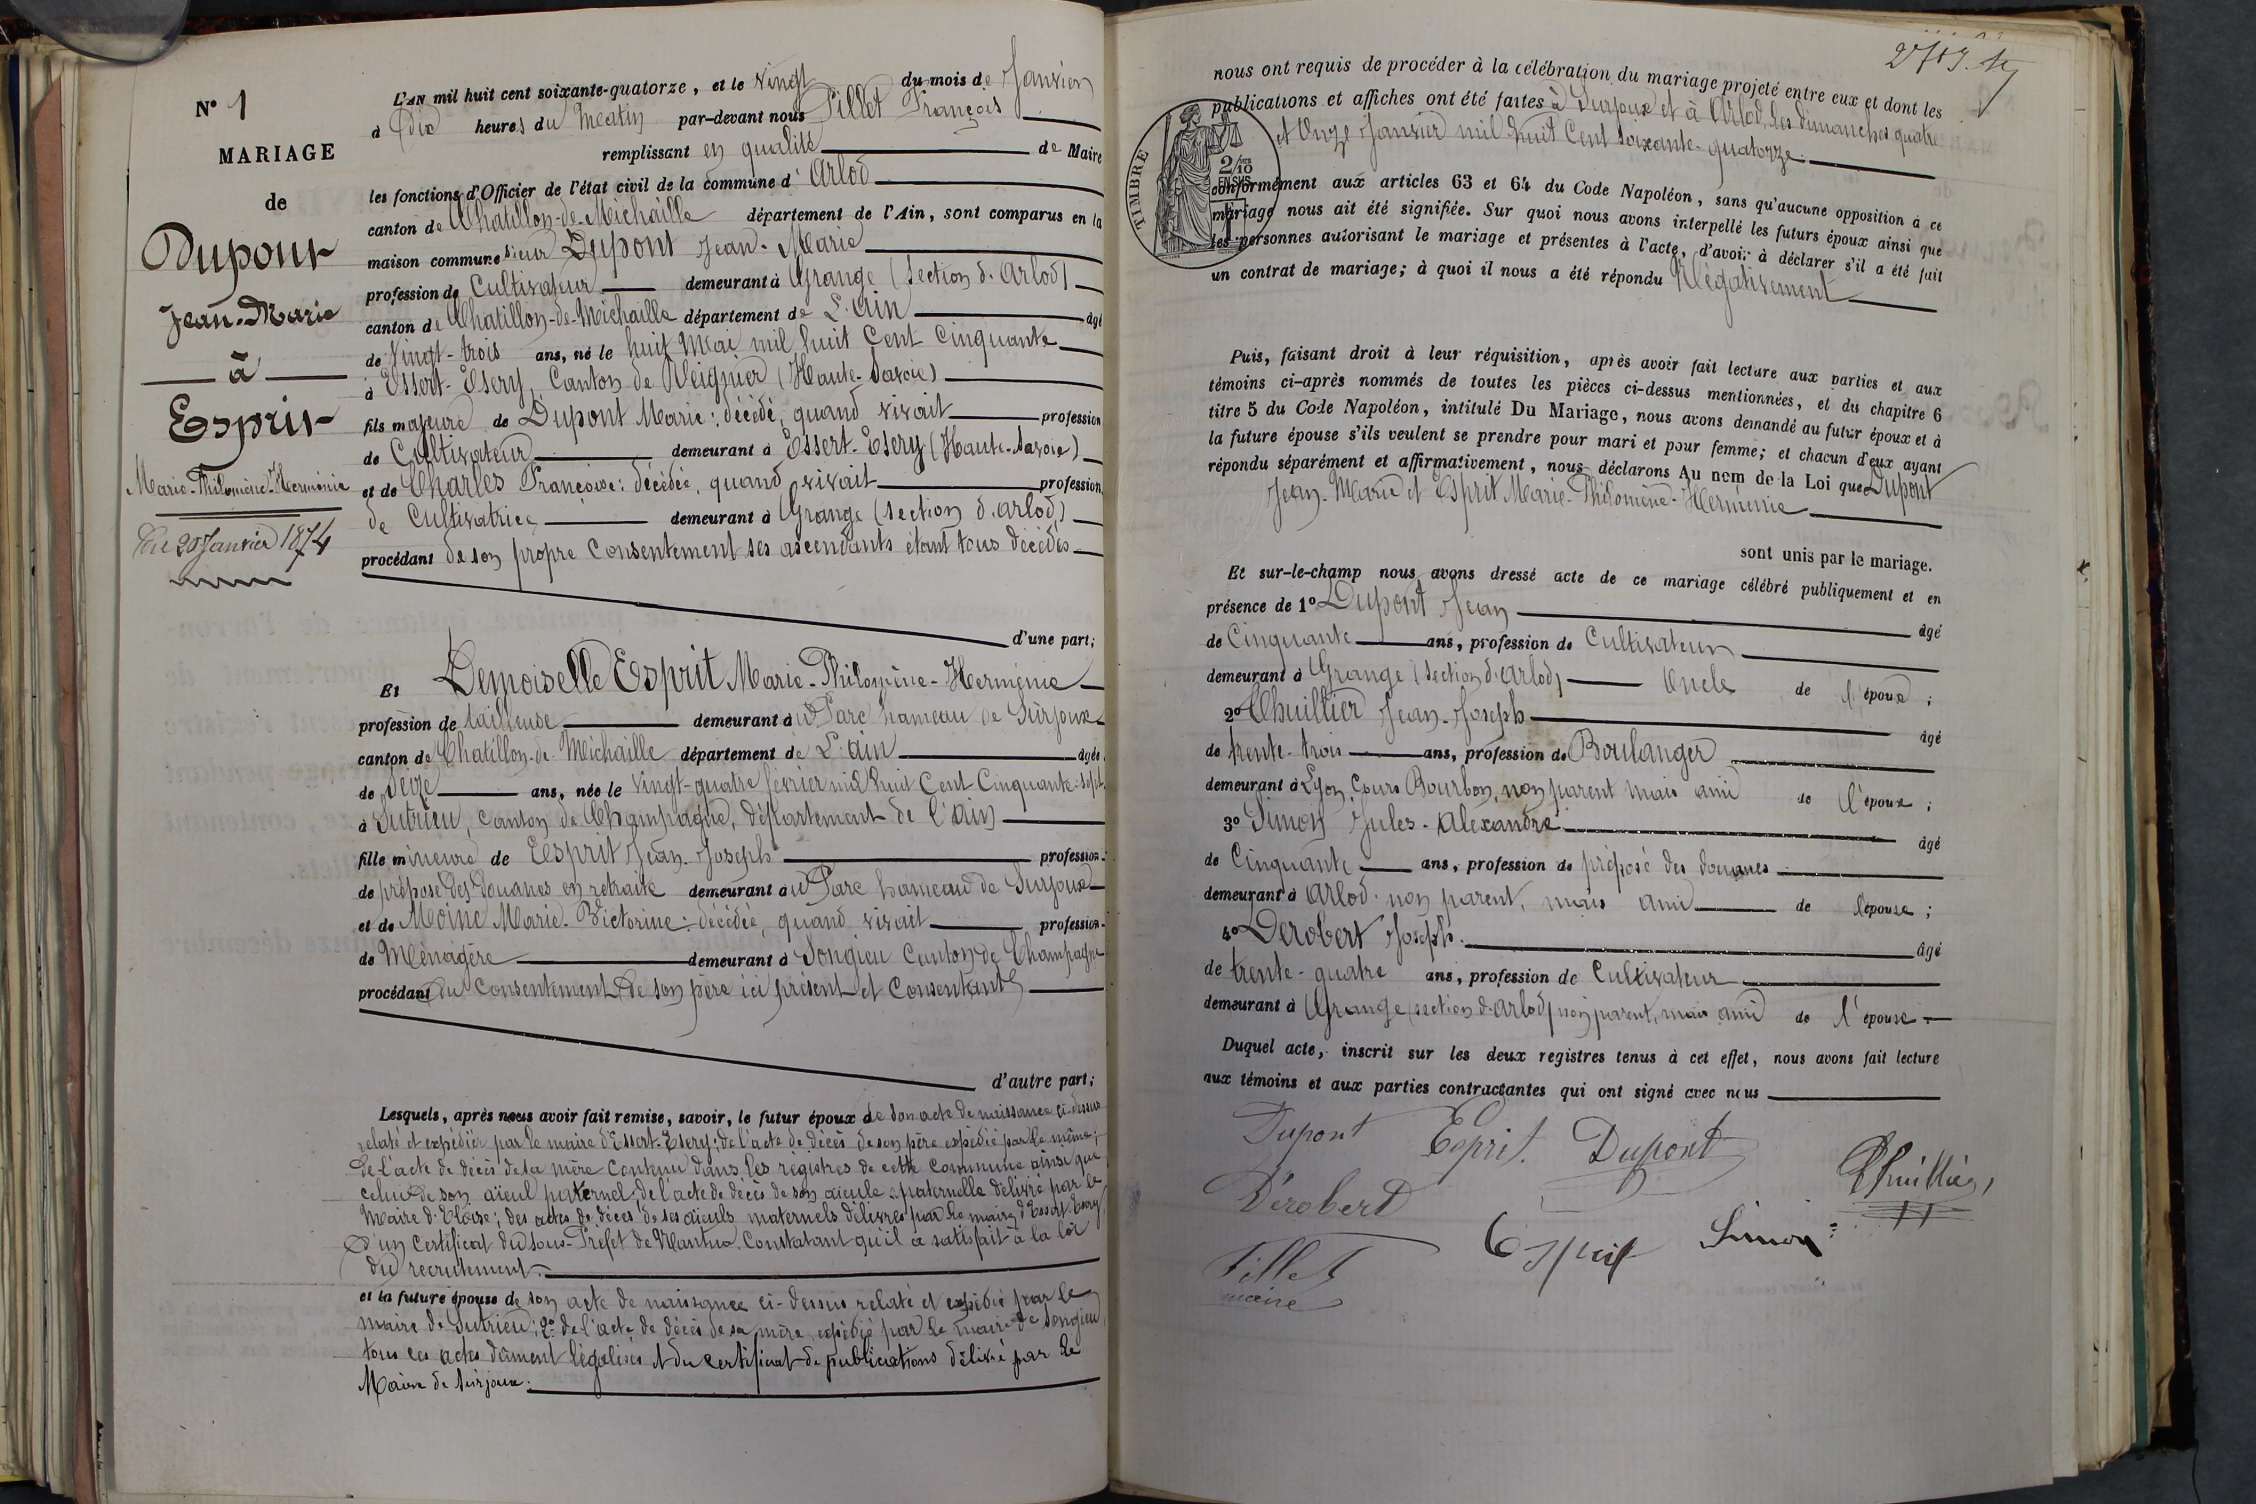 N° 1
MARIAGE
de
Dupont
Jean-Marie
à
Esprit
Marie-Philomène-Herménie
Du 20 Janvier 1874
L'AN mil huit cent soixante-quatorze, et le vingt du mois de Janvier
à Dix heures du Matin par-devant nous Pillet François
remplissant en qualité de Maire
les fonctions d'Officier de l'état civil de la commune d' Arlod
canton de Chatillon-de-Michaille département de l'Ain, sont comparus en la
maison commune sieur Dupont Jean-Marie
profession de Cultivateur demeurant à Grange (section d'Arlod)
canton de Chatillon-de-Michaille département de L'Ain âgé
de Vingt-trois ans, né le huit Mai mil huit Cent Cinquante
à Essert-Esery, Canton de Reignier (Haute-Savoie)
fils majeure de Dupont Marie: décédé, quand vivait profession
de Cultivateur demeurant à Essert-Esery (Haute-Savoie)
et de Charles Françoise: décédée, quand vivait profession
de Cultivatrice demeurant à Grange (section d'arlod)
procédant de son propre Consentement ses ascendants étant tous décédés
d'une part;
Et Demoiselle Esprit Marie-Philomène-Herménie
profession de tailleuse demeurant au Parc hameau de Surjoux
canton de Chatillon-de-Michaille département de L'ain âgée
de Seize ans, née le vingt-quatre février mil huit Cent Cinquante-sept
à Sutrieu, canton de Champagne, département de l'Ain
fille mineure de Esprit Jean-Joseph profession
de préposé des Douanes en retraite demeurant au Parc hameau de Surjoux
et de Moine Marie-Victorine: décédée, quand vivait profession
de Ménagère demeurant à Songieu Canton de Champagne
procédant du Consentement de son père ici présent et Consentant
d'autre part;
Lesquels, après nous avoir fait remise, savoir, le futur époux de son acte de naissance ci-dessus
relaté et expédié par le maire d'Essert-Esery; de l'acte de décès de son père expédié par le même;
de l'acte de décès de sa mère contenu dans les registres de cette commune ainsi que
celui de son aïeul paternel; de l'acte de décès de son aïeule paternelle délivré par le
Maire d'Eloise; des actes de décès de ses aïeuls maternels délivrés par le maire d'Essert-Esery
d'un certificat du sous-Préfet de Nantua constatant qu'il a satisfait à la loi
du recrutement.
et la future épouse de son acte de naissance ci-dessus relaté et expédié par le
maire de Sutrieu; 2° de l'acte de décès de sa mère, expédié par le maire de Songieu
tous ces actes dûment légalisés et du certificat de publications délivré par le
Maire de Surjoux.
nous ont requis de procéder à la célébration du mariage projeté entre eux et dont les
publications et affiches ont été faites à Surjoux et à Arlod, les dimanches quatre
et Onze Janvier mil huit Cent soixante-quatorze
TIMBRE
2/10
EN SUS
conformément aux articles 63 et 64 du Code Napoléon, sans qu'aucune opposition à ce
mariage nous ait été signifiée. Sur quoi nous avons interpellé les futurs époux ainsi que
les personnes autorisant le mariage et présentes à l'acte, d'avoir à déclarer s'il a été fait
un contrat de mariage; à quoi il nous a été répondu Négativement
Puis, faisant droit à leur réquisition, après avoir fait lecture aux parties et aux
témoins ci-après nommés de toutes les pièces ci-dessus mentionnées, et du chapitre 6
titre 5 du Code Napoléon, intitulé Du Mariage, nous avons demandé au futur époux et à
la future épouse s'ils veulent se prendre pour mari et pour femme; et chacun d'eux ayant
répondu séparément et affirmativement, nous déclarons Au nom de la Loi que Dupont
Jean-Marie et Esprit Marie-Philomène-Herménie
sont unis par le mariage.
Et sur-le-champ nous avons dressé acte de ce mariage célébré publiquement et en
présence de 1° Dupont Jean âgé
de Cinquante ans, profession de Cultivateur
demeurant à Grange (section d'Arlod) Oncle de l'époux;
2° Thuillier Jean-Joseph âgé
de trente-trois ans, profession de Boulanger
demeurant à Lyon, Cours Bourbon, non parent mais ami de l'époux;
3° Simon Jules-Alexandre âgé
de Cinquante ans, profession de préposé des douanes
demeurant à Arlod non parent, mais ami de l'épouse;
4° Derobert Joseph. âgé
de trente-quatre ans, profession de Cultivateur
demeurant à Grange (section d'Arlod) non parent, mais ami de l'épouse
Duquel acte, inscrit sur les deux registres tenus à cet effet, nous avons fait lecture
aux témoins et aux parties contractantes qui ont signé avec nous
Dupont Esprit. Dupont Thuillier
Derobert Esprit Simon
Pillet
maire